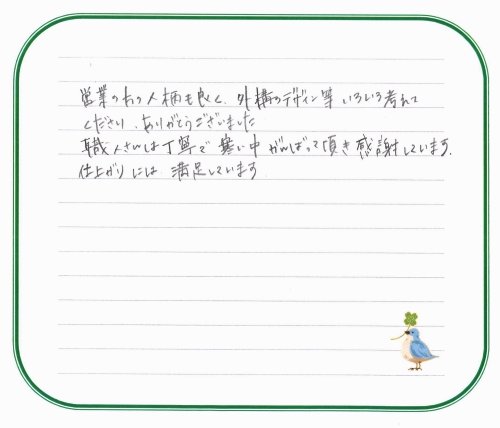 営業の方の人柄も良く、外構のデザイン等 いろいろ考えて
くださり、ありがとうございました
職人さんは丁寧で 寒い中 がんばって頂き感謝しています。
仕上がりには 満足しています